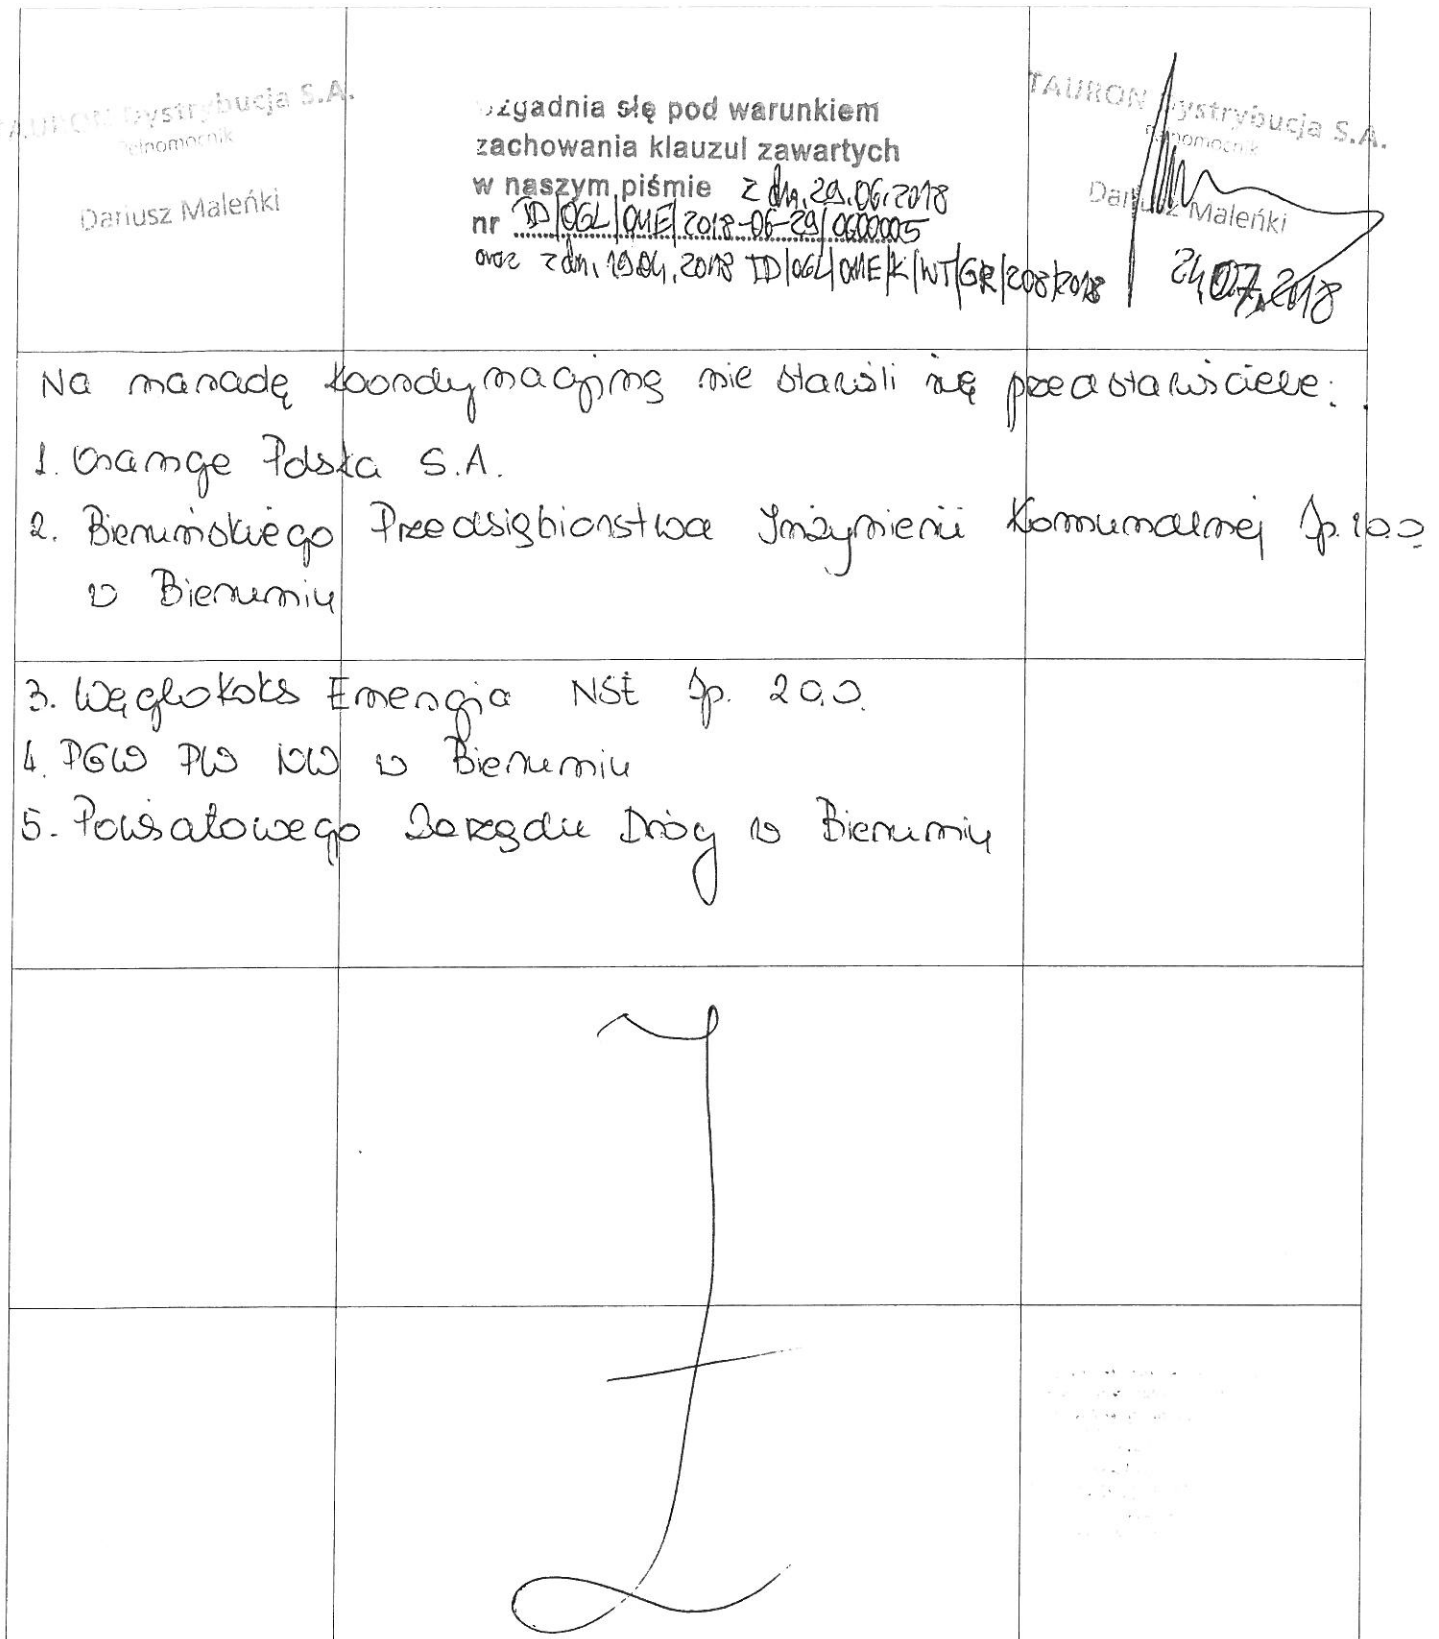 TAURON Dystrybucja S.A.
Pełnomocnik
Dariusz Maleńki
uzgadnia się pod warunkiem
zachowania klauzul zawartych
w naszym piśmie z dn. 29.06.2018
nr TD/OGL/OME/2018-06-29/0600005
oraz z dn. 19.04.2018 TD/OGL/OME/K/WT/GR/208/2018
TAURON Dystrybucja S.A.
Pełnomocnik
Dariusz Maleńki
24.07.2018
Na naradę koordynacyjną nie stawili się przedstawiciele:
1. Orange Polska S.A.
2. Bieruńskiego Przedsiębiorstwa Inżynierii Komunalnej Sp. z o.o.
w Bieruniu
3. Węglokoks Energia NSE Sp. z o.o.
4. PGW PW NW w Bieruniu
5. Powiatowego Zarządu Dróg w Bieruniu